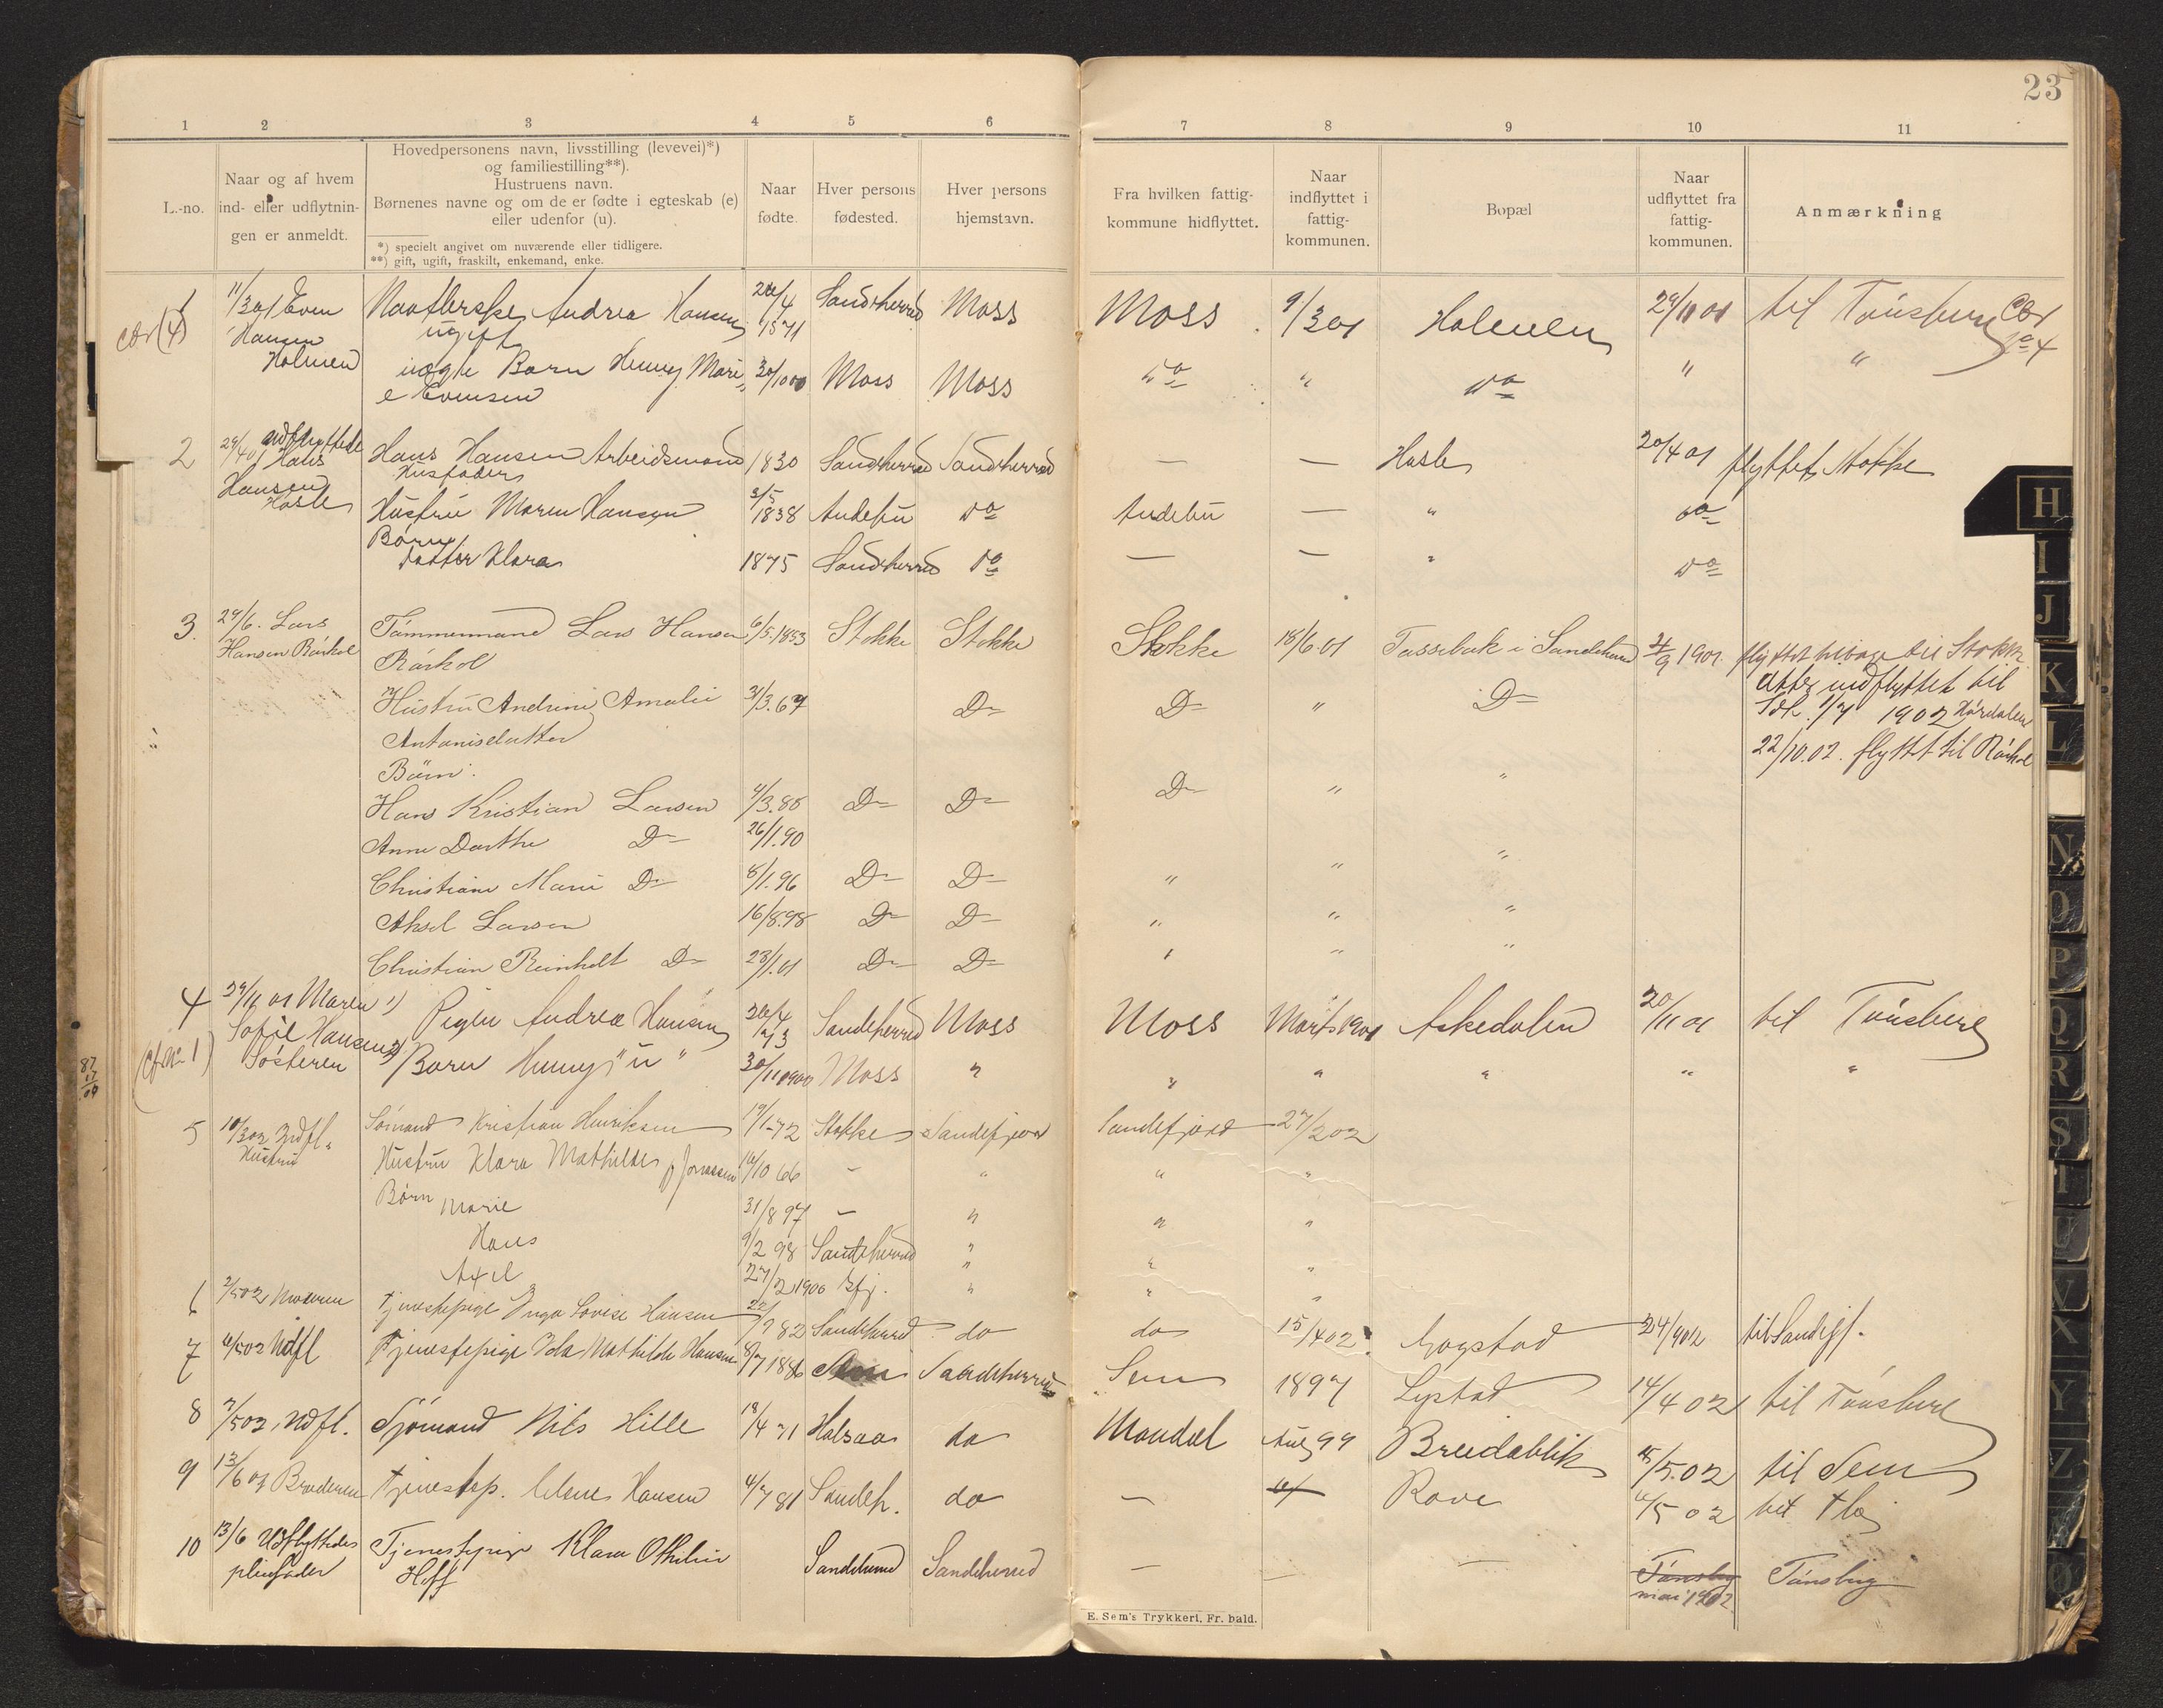 23
1 2 3 4 5 6 7 8 9 10 11
L.-no.
Naar og af hvem
ind- eller udflytnin-
gen er anmeldt.
Hovedpersonens navn, livsstilling (levevei)*)
og familiestilling**).
Hustruens navn.
Børnenes navne og om de er fødte i egteskab (e)
eller udenfor (u).
*) specielt angivet om nuværende eller tidligere.
**) gift, ugift, fraskilt, enkemand, enke.
Naar
fødte.
Hver persons
fødested.
Hver persons
hjemstavn.
Fra hvilken fattig-
kommune hidflyttet.
Naar
indflyttet i
fattig-
kommunen.
Bopæl
Naar
udflyttet fra
fattig-
kommunen.
Anmærkning
1 11/3 01 Even Andrea Hansen 20/4 Sandeherred Moss Moss 9/3 01 Holmen 29/11 01 til Tönsberg
Hansen ugift 1871
Holmen uægte Barn Henny Mari 30/10 00 Moss Moss do " do " "
e Evensen
2 29/4 01 udflyttede Hans Hansen Arbeidsmand 1830 Sandeherred Sandeherred — — Hasle 20/4 01 flyttet Stokke
Hans
Hansen Husfader
Hasle Hustru Maren Hansen 3/5 1838 Andebu do Andebu — " do
Børn
Datter Klara 1875 Sandeherred do — — " do
3. 29/6. Lars Tömmermand Lars Hansen 6/5.1853 Stokke Stokke Stokke 18/6.01 i Sandeherred 1901. flyttet tilbage til Stokke
Hansen Råstkol Råstkol
atter indflyttet til
Hustru Andrine Amalie 31/3.67 D– D– " D– 1/7 1902
Antonisdatter
22/10.02. flyttet til
Börn.
Hans Kristian Larsen 4/3.88 D– D– D– " "
Anne Dorthe D– 26/1.90 " "
Christiane Marie D– 8/1.96 D– D– "
Aksel Larsen 16/8.98 D– D– " " "
Christian Reinholt D– 23/1.01 D– D– " " "
4 29/11 01 Maren 1) Pigen Andrea Hansen 20/4 73 Sandeherred Moss Moss Marts 1901 Askedalen 20/11 01 til Tönsberg
Sofie Hansen
Sösteren 2) Barn Henny "u" 30/11 1900 Moss " " " " " "
5 10/3 02 Indfl. Sömand Kristian Henriksen 19/1-72 Stokke Sandefjord Sandefjord 27/2 02
Hustru Hustru Klara Mathilde f. Jonassen 16/10 66 – " " "
Börn Marie 31/8 97 – " " "
Hans 9/2 98 Sandeherred " " "
Axel 27/2 1900 Sfj. " " "
6 2/5 02 Moderen Tjenestepige Inga Lovise Hansen 82 Sandeherred do do 15/4 02 Gogstad 24/9 02 til Sandefj.
7 6/5 02 Udfl Tjenestepige Ida Mathilde Hansen 8/7 1886 Sandeherred Sem 1897 Lystad 14/4 02 til Tönsberg
8 7/5 02 Udfl. Sjömand Nils Hille 18/4 71 Halsaa do Mandal Aug 99 Breidablik 15/5.02 til Sem
9 13/6 01 Broderen Tjenestep. Hansen 4/7 81 Sandeh. do — Rove 6/5 02
10 13/6 Udflyttedes Tjenestepige Klara Othilie Sandeherred Sandeherred — — — Tönsberg Tönsberg
pleiefader Hoff mai 1902
E. Sem's Trykkeri, Fr. bald.
H
I
J
K
L
N
O
P
Q
R
S
T
U
V
X
Y
Z